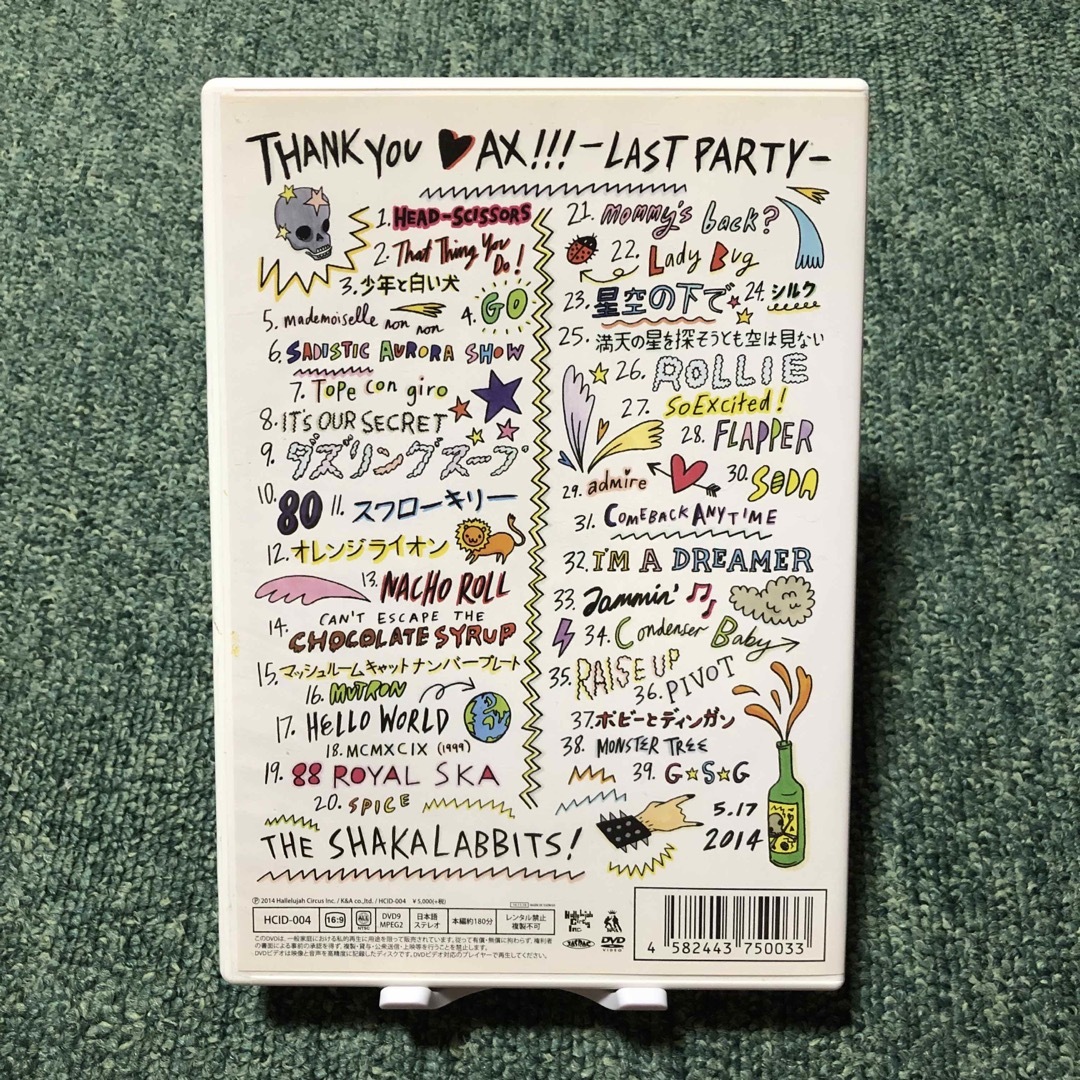 THANK YOU ♥ AX!!! -LAST PARTY-
1. HEAD-SCISSORS
2. That Thing You Do!
3. 少年と白い犬
4. GO
5. mademoiselle non non
6. SADISTIC AURORA SHOW
7. Tope con giro
8. IT'S OUR SECRET
9. ダズリングスープ
10. 80
11. スフローキリー
12. オレンジライオン
13. NACHO ROLL
14. CAN'T ESCAPE THE CHOCOLATE SYRUP
15. マッシュルームキャットナンバープレート
16. MUTRON
17. HELLO WORLD
18. MCMXCIX (1999)
19. 88 ROYAL SKA
20. SPICE
21. mommy's back?
22. Lady Bug
23. 星空の下で
24. シルク
25. 満天の星を探そうとも空は見ない
26. ROLLIE
27. So Excited!
28. FLAPPER
29. admire
30. SODA
31. COMEBACK ANYTIME
32. I'M A DREAMER
33. Jammin'
34. Condenser Baby
35. RAISE UP
36. PIVOT
37. ボビーとディンガン
38. MONSTER TREE
39. G★S★G
5.17
2014
THE SHAKALABBITS!
Ⓟ 2014 Hallelujah Circus Inc. / K&A co.,ltd. / HCID-004 ¥5,000(+税)
HCID-004
16:9
ALL NTSC
DVD9 MPEG2
日本語 ステレオ
本編約180分
レンタル禁止 複製不可
DVD VIDEO
このDVDは、一般家庭における私的再生に用途を限って販売されています。従って有償・無償に拘わらず、権利者
の書面による事前の承諾を得ず、複製・貸与・公衆送信・上映等を行うことを禁止します。
DVDビデオは映像と音声を高精度に記録したディスクです。DVDビデオ対応のプレイヤーで再生してください。
4 582443 750033